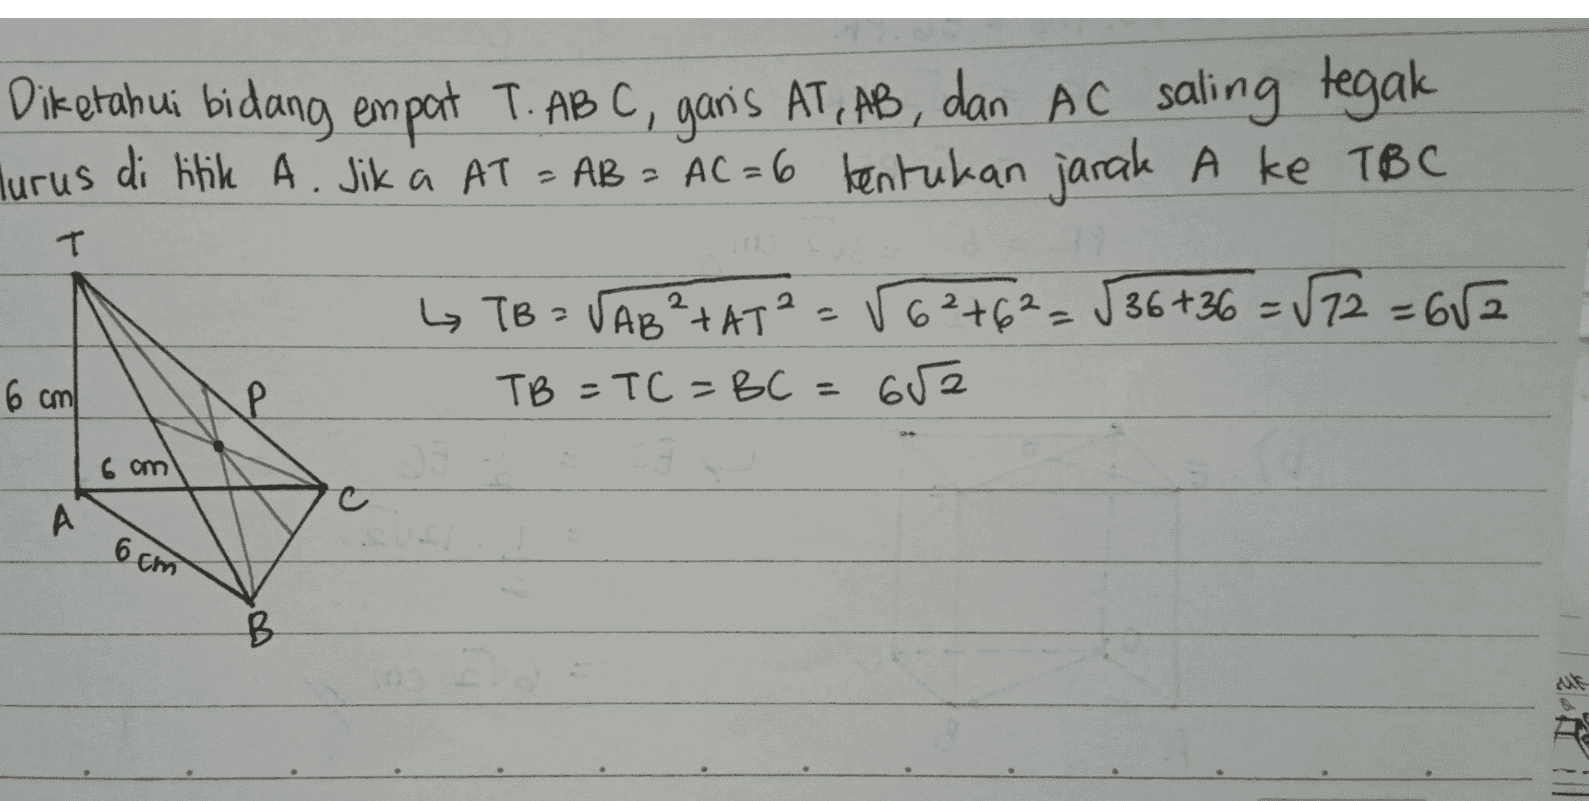 Diketahui bidang empat T. ABC, garis AT, AB, dan AC saling tegak
lurus di titik A. Jika AT = AB = AC = 6 tentukan jarak A ke TBC
T
↳ TB = √AB²+AT² = √6²+6² = √36+36 = √72 = 6√2
6 cm
P
TB = TC = BC = 6√2
6 cm
A
C
6 cm
B